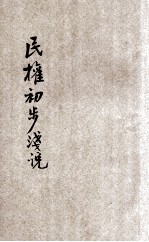 民權初步淺说